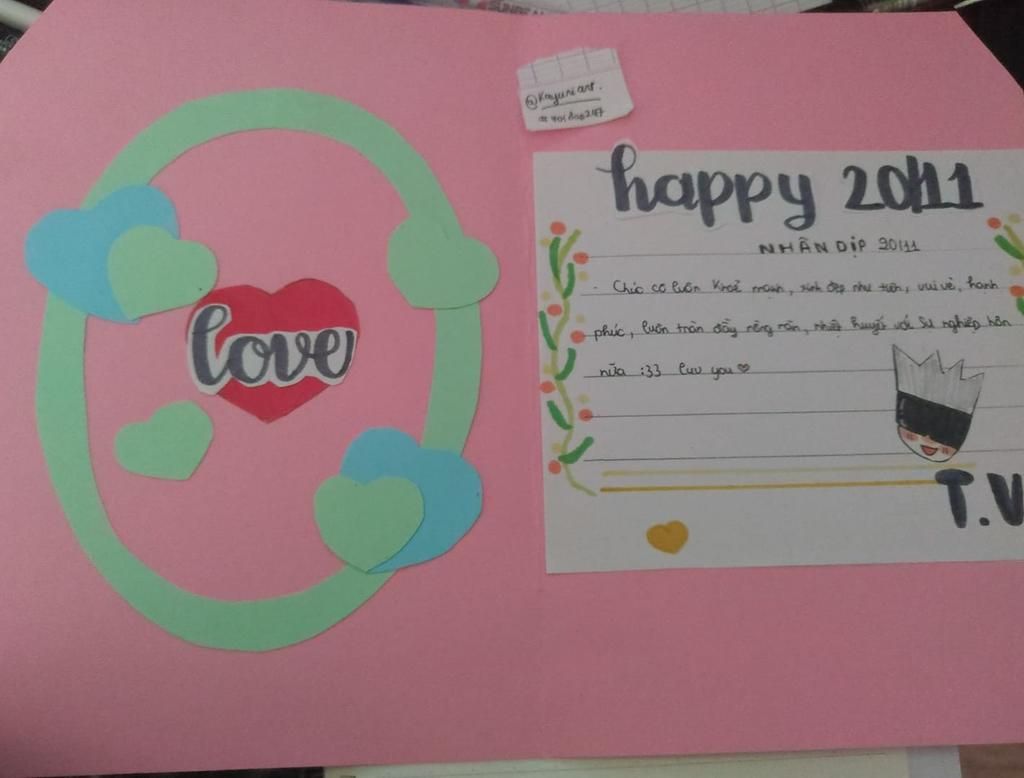 SUNBEA
@Kayuriart.
love
happy 20/11
NHÂN DỊP 20/11
- Chúc cô luôn khoẻ mạnh, xinh đẹp như tiên, vui vẻ, hạnh
phúc, luôn tràn đầy năng, nhiệt huyết với sự nghiệp hơn
nữa :33 luv you ♡
T.V